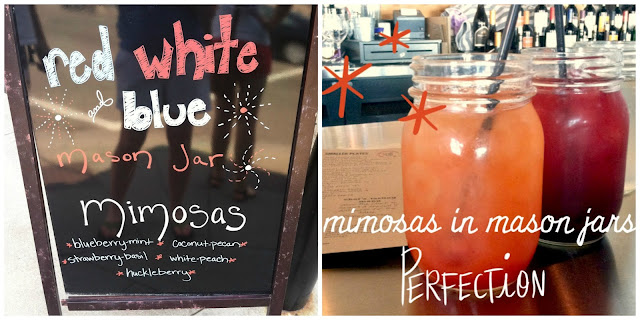 red white
and blue
mason Jar
mimosas
blueberry-mint coconut-pecan
strawberry-basil white-peach
huckleberry
mimosas in mason jars
PERFECTION